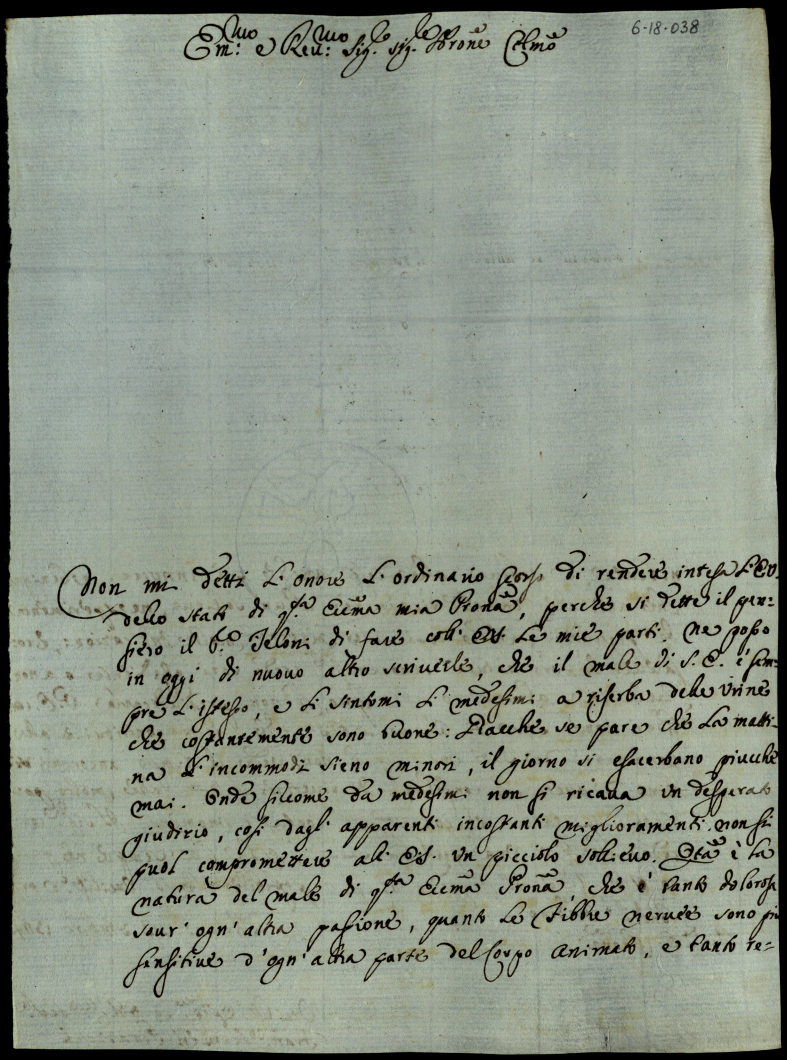 6-18-038
Em:mo e Reu:mo Sig.e Sig.le Prone Colmo
Non mi detti l'onore l'ordinario scorso di rendere intesa l'Ev:
dello stato di q.sta Eccma mia Pronã, perche si dette il pen=
siero il S.e Teloni di fare coll' Es. le mie parti. Ne posso
in oggi di nuovo altro scriverle, che il male di S. E. è sem=
pre l'istesso, e li sintomi li medesimi a riserba delle Urine
che costantemente sono buone: Placche se pare che la matti=
na l'incommodi sieno minori, il giorno si esacerbano piucche
mai. Onde siccome da medesimi non si ricaua un desperato
giudizio, cosi dagl' apparenti incostanti miglioramenti non si
puol compromettere all' Es. un picciolo sollieuo. è la
natura del male di q.sta Eccma Pronã, che è tanto dolorosa
sour' ogn' altra passione, quanto le Fibbre neruee sono piu
sensitiue d'ogn'altra parte del Corpo animato, e tanto re=